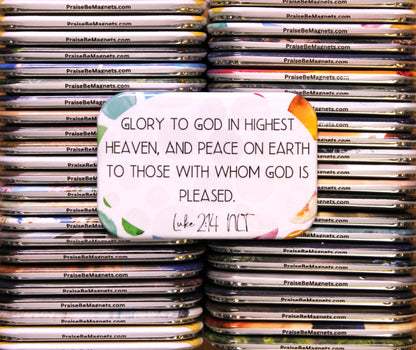 PraiseBeMagnets.com
PraiseBeMagnets.com
PraiseBeMagnets.com
PraiseBeMagnets.com
PraiseBeMagnets.com
PraiseBeMagnets.com
PraiseBeMagnets.com
PraiseBeMagnets.com
PraiseBeMagnets.com
PraiseBeMagnets.com
PraiseBeMagnets.com
PraiseBeMagnets.com
PraiseBeMagnets.com
GLORY TO GOD IN HIGHEST
HEAVEN, AND PEACE ON EARTH
TO THOSE WITH WHOM GOD IS
PLEASED.
Luke 2:14 NLT
PraiseBeMagnets.com
PraiseBeMagnets.com
PraiseBeMagnets.com
PraiseBeMagnets.com
PraiseBeMagnets.com
PraiseBeMagnets.com
PraiseBeMagnets.com
PraiseBeMagnets.com
PraiseBeMagnets.com
PraiseBeMagnets.com
PraiseBeMagnets.com
PraiseBeMagnets.com
PraiseBeMagnets.com